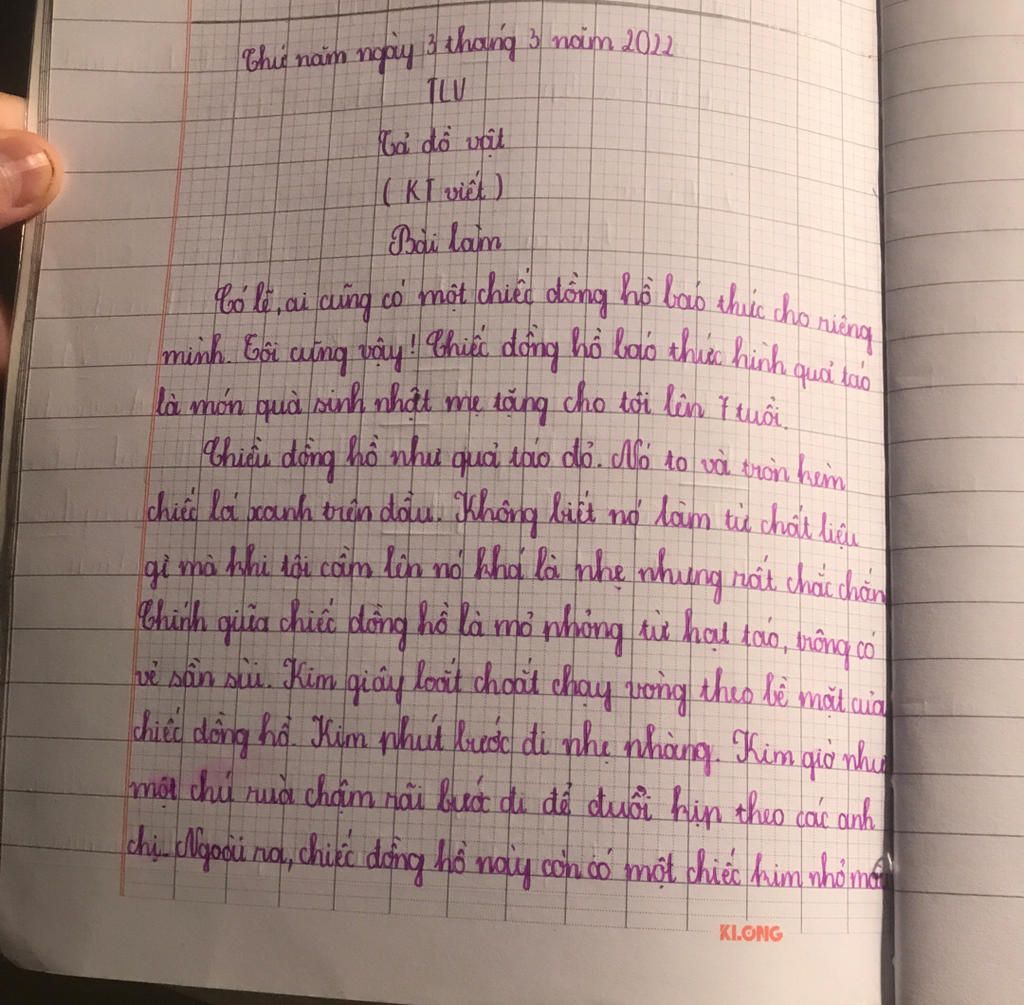 Thứ năm ngày 3 tháng 3 năm 2022
TLV
Tả đồ vật
(KT viết)
Bài làm
Có lẽ, ai cũng có một chiếc đồng hồ báo thức cho riêng
mình. Tôi cũng vậy! Chiếc đồng hồ báo thức hình quả táo
là món quà sinh nhật mẹ tặng cho tôi lên 7 tuổi.
Chiếc đồng hồ như quả táo đỏ. Nó to và tròn kèm
chiếc lá xanh trên đầu. Không biết nó làm từ chất liệu
gì mà khi tôi cầm lên nó khá là nhẹ nhưng rất chắc chắn
Chính giữa chiếc đồng hồ là mô phỏng từ hạt táo, trông có
vẻ sần sùi. Kim giây loắt choắt chạy vòng theo bề mặt của
chiếc đồng hồ. Kim phút bước đi nhẹ nhàng. Kim giờ như
một chú rùa chậm rãi bước đi để đuổi kịp theo các anh
chị. Ngoài ra, chiếc đồng hồ này còn có một chiếc kim nhỏ
KLONG